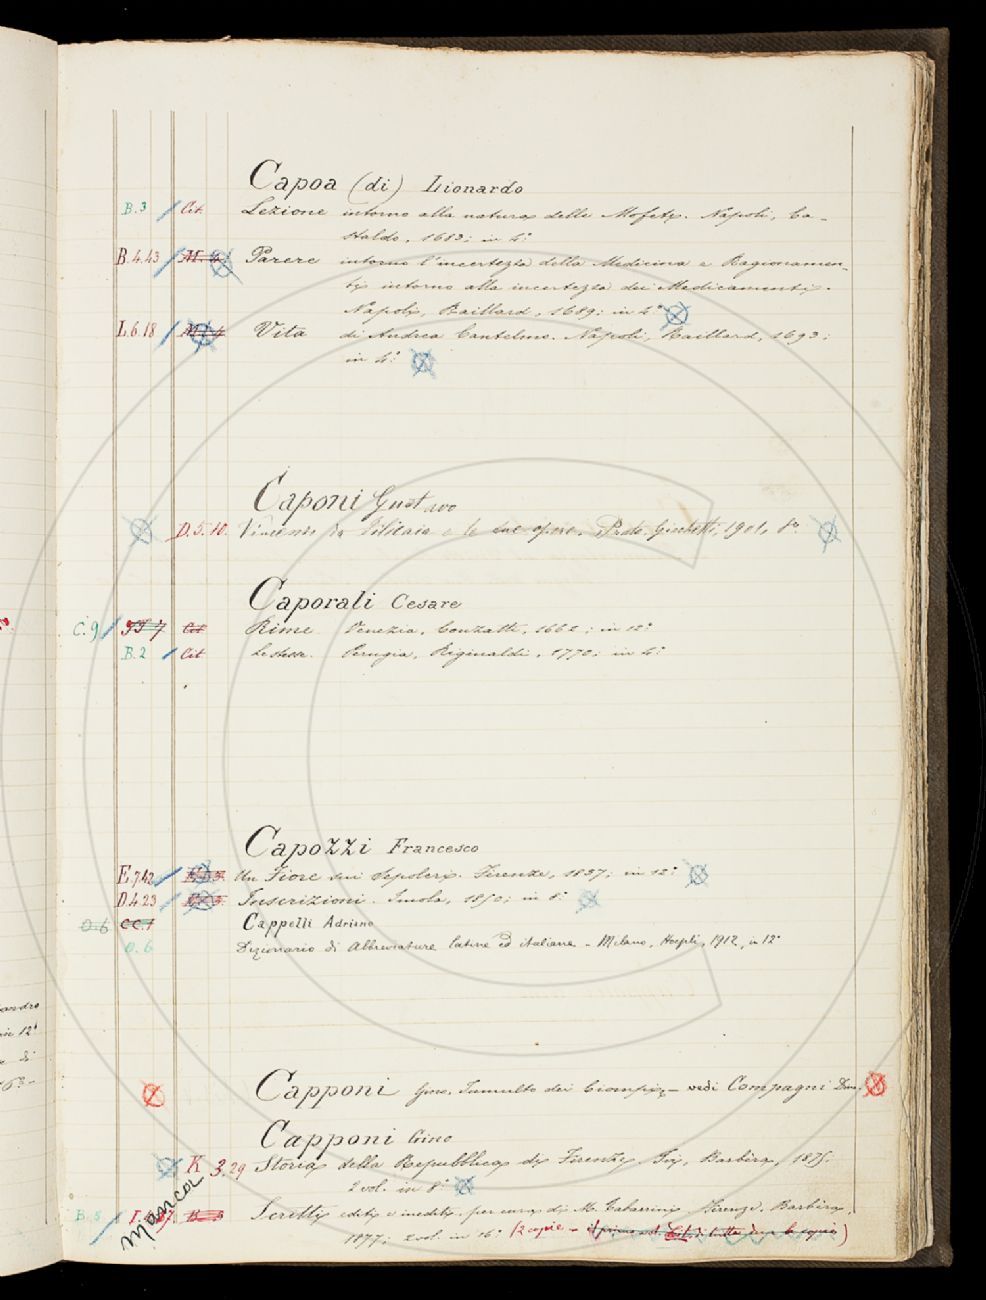 Capoa (di) Lionardo
B.3 Cit. Lezione intorno alla natura delle Mofete. Napoli, Ca-
staldo, 1683; in 4.°
B.4.43 Parere intorno l'incertezza della Medicina e Ragionamen-
ti intorno alla incertezza dei Medicamenti.
Napoli, Raillard, 1689; in 4.°
L.6.18 Vita di Andrea Cantelmo. Napoli, Raillard, 1693;
in 4.°
Caponi Gustavo
D.5.10. Vincenzo da Filicaia e le sue opere. Prato, 1901, 8°
Caporali Cesare
C.9 Cit Rime Venezia, 1662; in 12.°
B.2 Cit Le stesse. Perugia, Riginaldi, 1770; in 4.°
Capozzi Francesco
E.7.42 Un Fiore sui Sepolcri. Firenze, 1837; in 12.°
D.4.23 Inscrizioni. Imola, 1850; in 8.°
O.6 CC.1 Cappelli Adriano
O.6 Dizionario di Abbreviature latine ed italiane - Milano, Hoepli, 1912, in 12°
Capponi Gino, Tumulto dei Ciompi, - vedi Compagni Dino.
Capponi Gino
K 3.29 Storia della Repubblica di Firenze. Fir, Barbèra, 1875.
2 vol. in 8.°
manca
B.5 Scritti editi e inediti per cura di M. Tabarrini Firenze, Barbèra,
1877; 2 vol. in 16.° (2 copie -